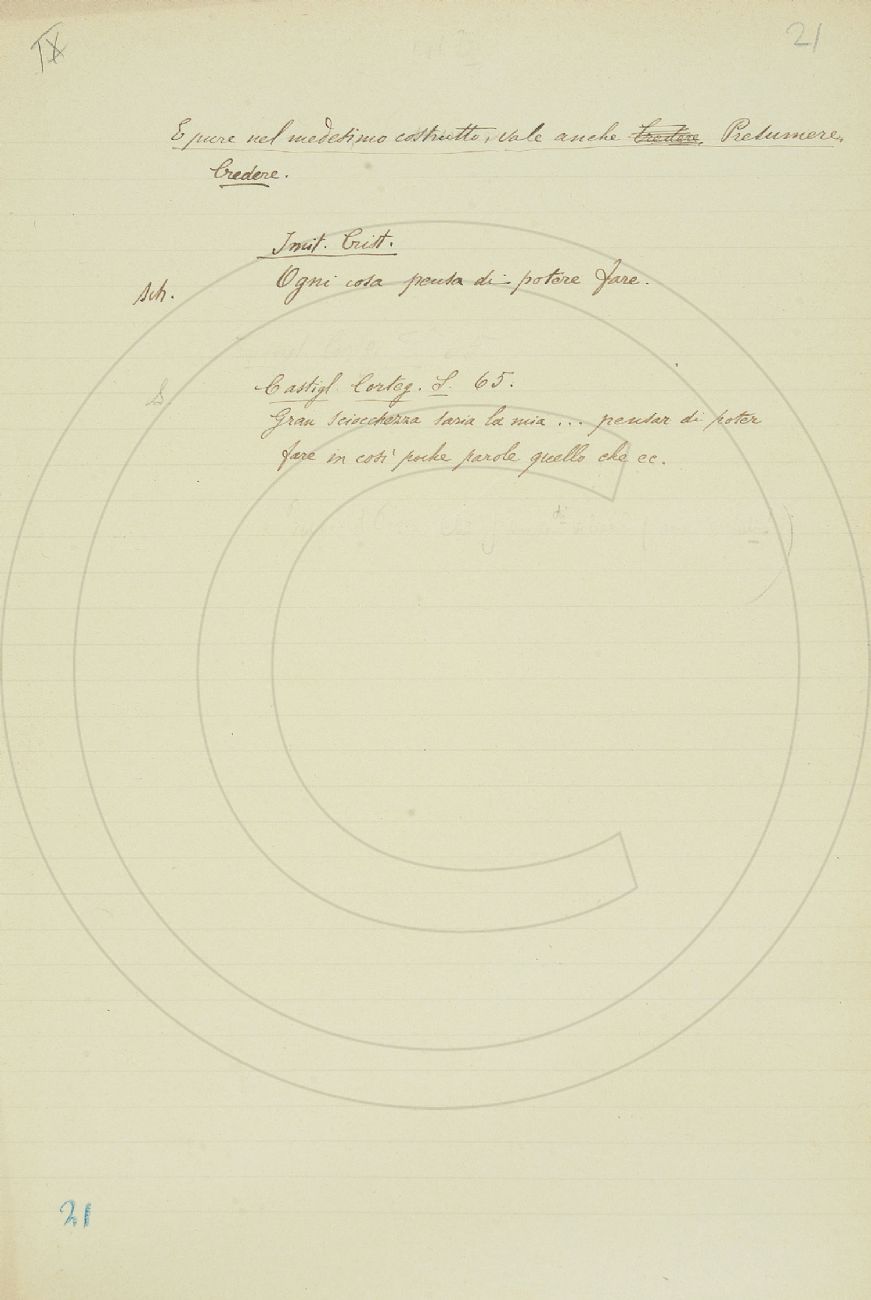 IX
21
E pure nel medesimo costrutto, vale anche Credere, Presumere,
Credere.
Imit. Crist.
Sch.
Ogni cosa pensa di potere fare.
S.
Castigl. Corteg. I. 65.
Gran sciocchezza saria la mia ... pensar di poter
fare in così poche parole quello che ec.
21